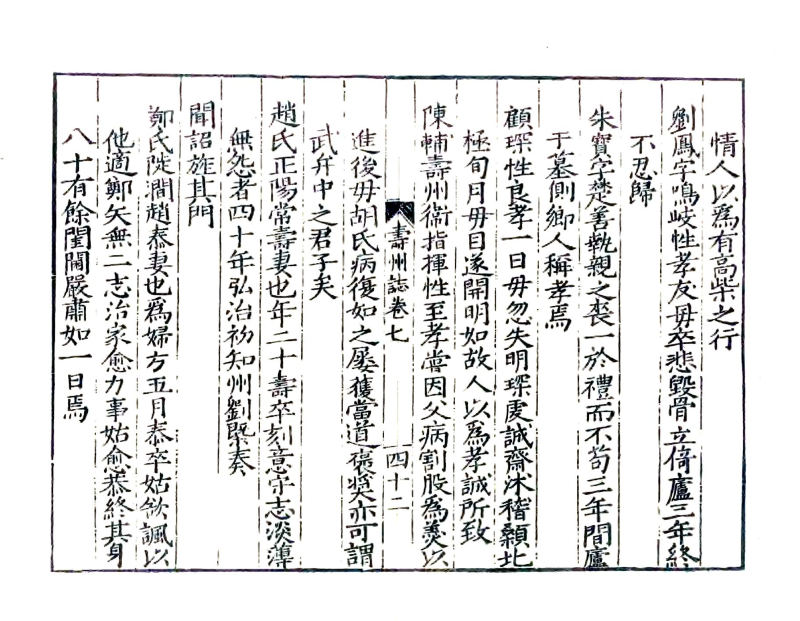 情人以為有高柴之行
劉鳳字鳴岐性孝友毋卒悲毀骨立倚廬三年終
不忍歸
朱寶字楚善執親之喪一於禮而不苟三年間廬
于墓側鄉人稱孝焉
顧琛性良孝一日毋忽失明琛虔誠齋沐稽顙北
極旬月毋目遂開明如故人以為孝誠所致
陳輔壽州衞指揮性至孝嘗因父病割股為羮以
壽州誌卷七
四十二
進後毋胡氏病復如之屡獲當道褒奬亦可謂
武弁中之君子矣
趙氏正陽常壽妻也年二十壽卒刻意守志淡薄
無怨者四十年弘治初知州劉槩奏
聞詔旌其門
鄭氏陡澗趙泰妻也爲婦方五月泰卒姑欲諷以
他適鄭矢無二志治家愈力事姑愈恭終其身
八十有餘閨閫嚴肅如一日焉